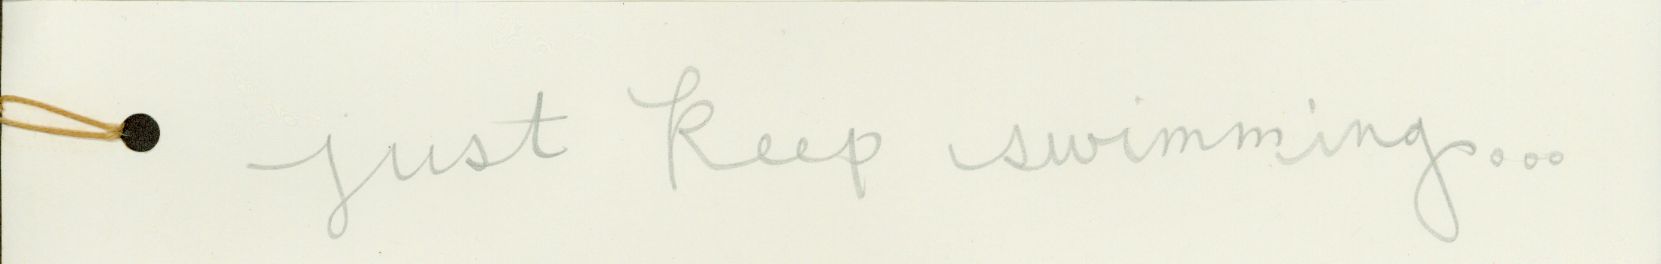 just keep swimming...